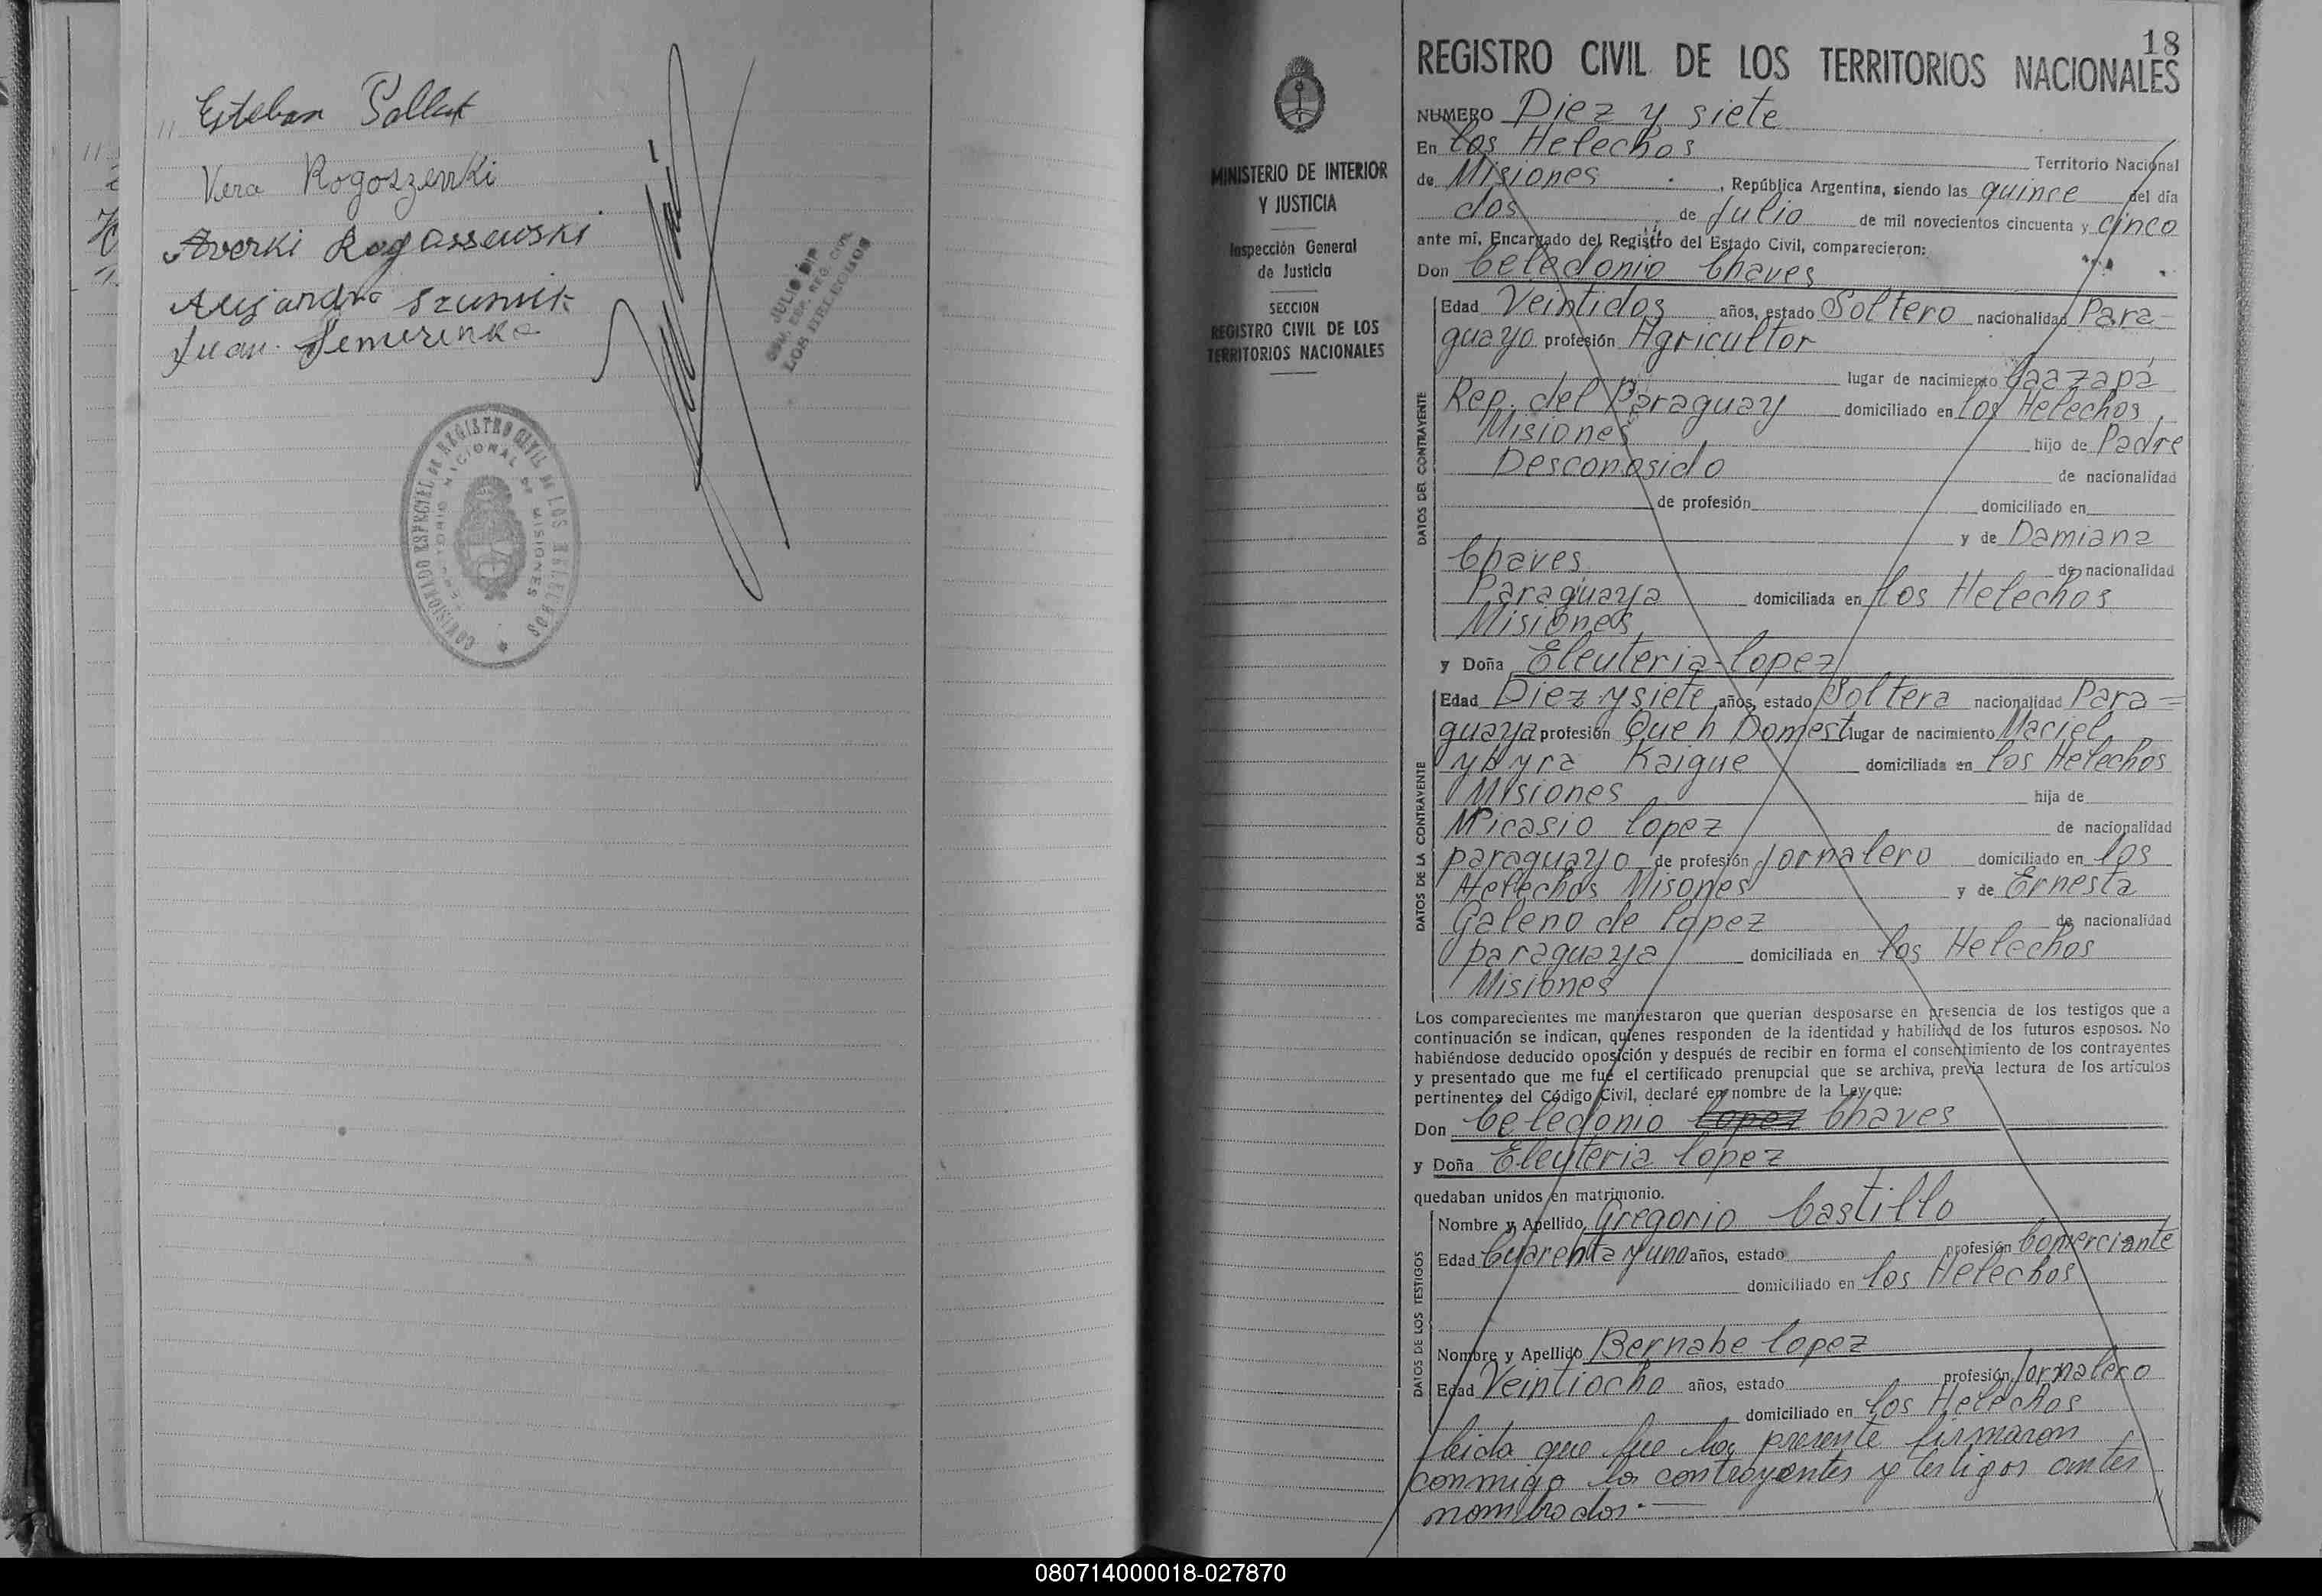 Esteban Pollut
Vera Rogoszewski
Averki Rogassewski
Alejandro Szumik
Juan Semerenko
COMISIONADO ESPECIAL DE REGISTRO CIVIL DE LOS HELECHOS
TERRITORIO NACIONAL DE MISIONES
JULIO DIP
COM. ESP. REG. CIVIL
LOS HELECHOS
MINISTERIO DE INTERIOR
Y JUSTICIA
Inspección General
de Justicia
SECCION
REGISTRO CIVIL DE LOS
TERRITORIOS NACIONALES
18
REGISTRO CIVIL DE LOS TERRITORIOS NACIONALES
NUMERO Diez y siete
En los Helechos Territorio Nacional
de Misiones, República Argentina, siendo las quince del día
dos de Julio de mil novecientos cincuenta y cinco
ante mí, Encargado del Registro del Estado Civil, comparecieron:
Don Celedonio Chaves
DATOS DEL CONTRAYENTE
Edad Veintidos años, estado Soltero nacionalidad Para-
guayo profesión Agricultor
lugar de nacimiento Caazapá
Rep. del Paraguay domiciliado en los Helechos
Misiones hijo de Padre
Desconosido de nacionalidad
de profesión domiciliado en
y de Damiana
Chaves de nacionalidad
Paraguaya domiciliada en los Helechos
Misiones
y Doña Eleuteria lopez
DATOS DE LA CONTRAYENTE
Edad Diez y siete años, estado Soltera nacionalidad Para=
guaya profesión Que h Domest lugar de nacimiento Maciel
ybyra Kaigue domiciliada en los Helechos
Misiones hija de
Nicasio lopez de nacionalidad
paraguayo de profesión Jornalero domiciliado en los
Helechos Misones y de Ernesta
Galeno de lopez de nacionalidad
paraguaya domiciliada en los Helechos
Misiones
Los comparecientes me manifestaron que querían desposarse en presencia de los testigos que a
continuación se indican, quienes responden de la identidad y habilidad de los futuros esposos. No
habiéndose deducido oposición y después de recibir en forma el consentimiento de los contrayentes
y presentado que me fué el certificado prenupcial que se archiva, previa lectura de los artículos
pertinentes del Código Civil, declaré en nombre de la Ley que:
Don Celedonio lopez Chaves
y Doña Eleuteria lopez
quedaban unidos en matrimonio.
DATOS DE LOS TESTIGOS
Nombre y Apellido Gregorio Castillo
Edad Cuarenta y uno años, estado profesión Comerciante
domiciliado en los Helechos
Nombre y Apellido Bernabe lopez
Edad Veintiocho años, estado profesión Jornalero
domiciliado en los Helechos
leida que fue la presente firmaron
conmigo los contrayentes y testigos antes
nombrados.
080714000018-027870